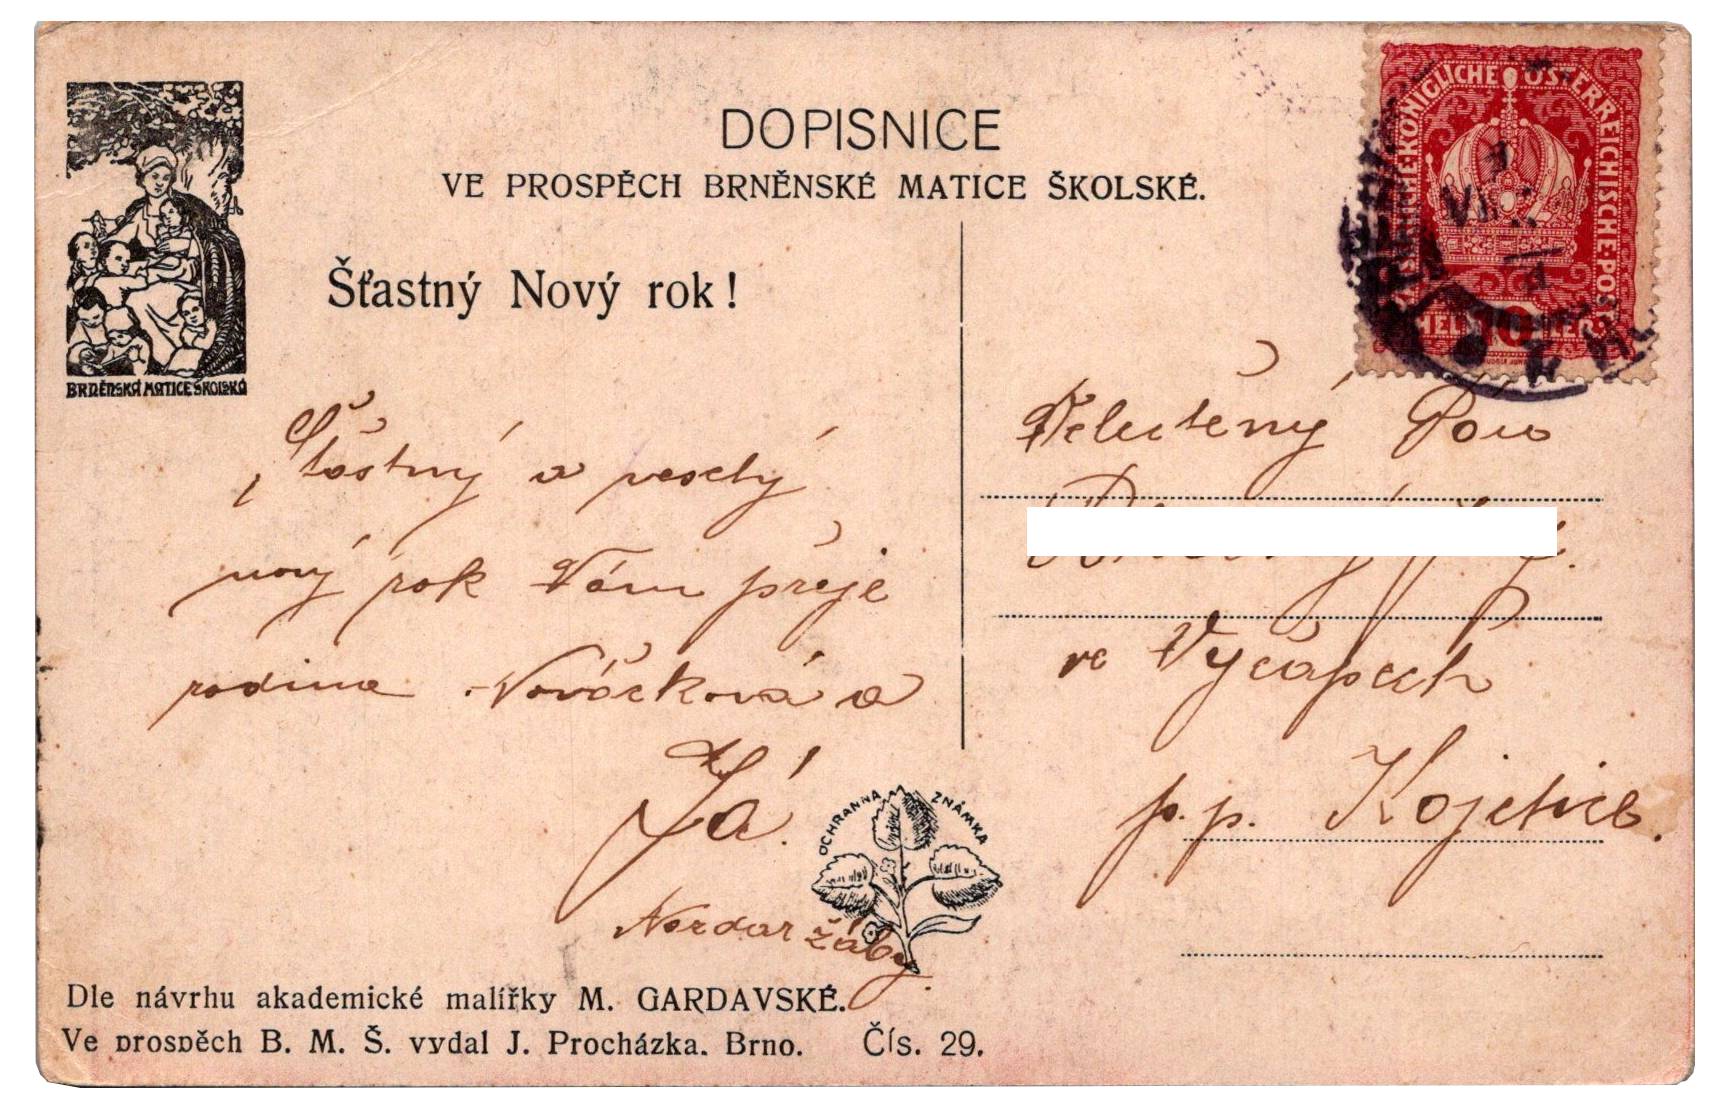 DOPISNICE
VE PROSPĚCH BRNĚNSKÉ MATICE ŠKOLSKÉ.
BRNĚNSKÁ MATICE ŠKOLSKÁ
Šťastný Nový rok!
Šťastný a veselý
nový rok Vám přeje
rodina Nováčková a
Já.
Nazdar žáby.
KÖNIGLICHE ÖSTERREICHISCHE POST
HELLER 10 HELLER
Velectěný Pán
ve Výčapech
p. p. Kojetice.
OCHRANNÁ ZNÁMKA
Dle návrhu akademické malířky M. GARDAVSKÉ.
Ve prospěch B. M. Š. vydal J. Procházka. Brno. Čís. 29.